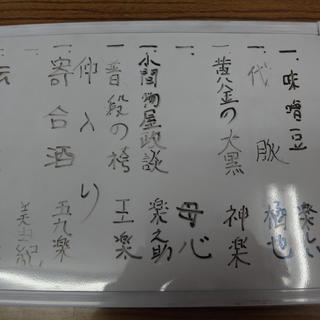 一、味噌豆
一、代脈 極也
一、黄金の大黒 神楽
一、 母心
一、小間物屋政談 楽之助
一、普段の袴 王楽
仲入り
一、寄合酒 五九楽